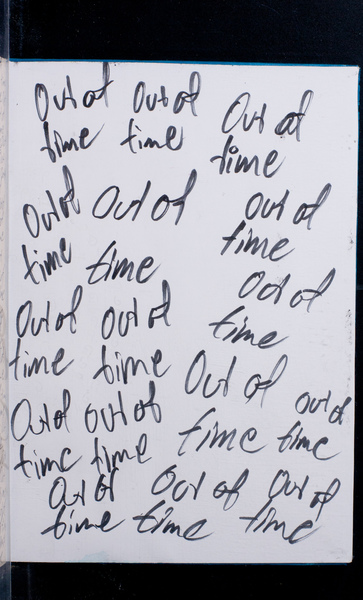 Out of Out of Out of
time time time
Out of Out of Out of
time time time
Out of Out of Out of
time time time
Out of out of Out of out of
time time time time
Out of Out of Out of
time time time